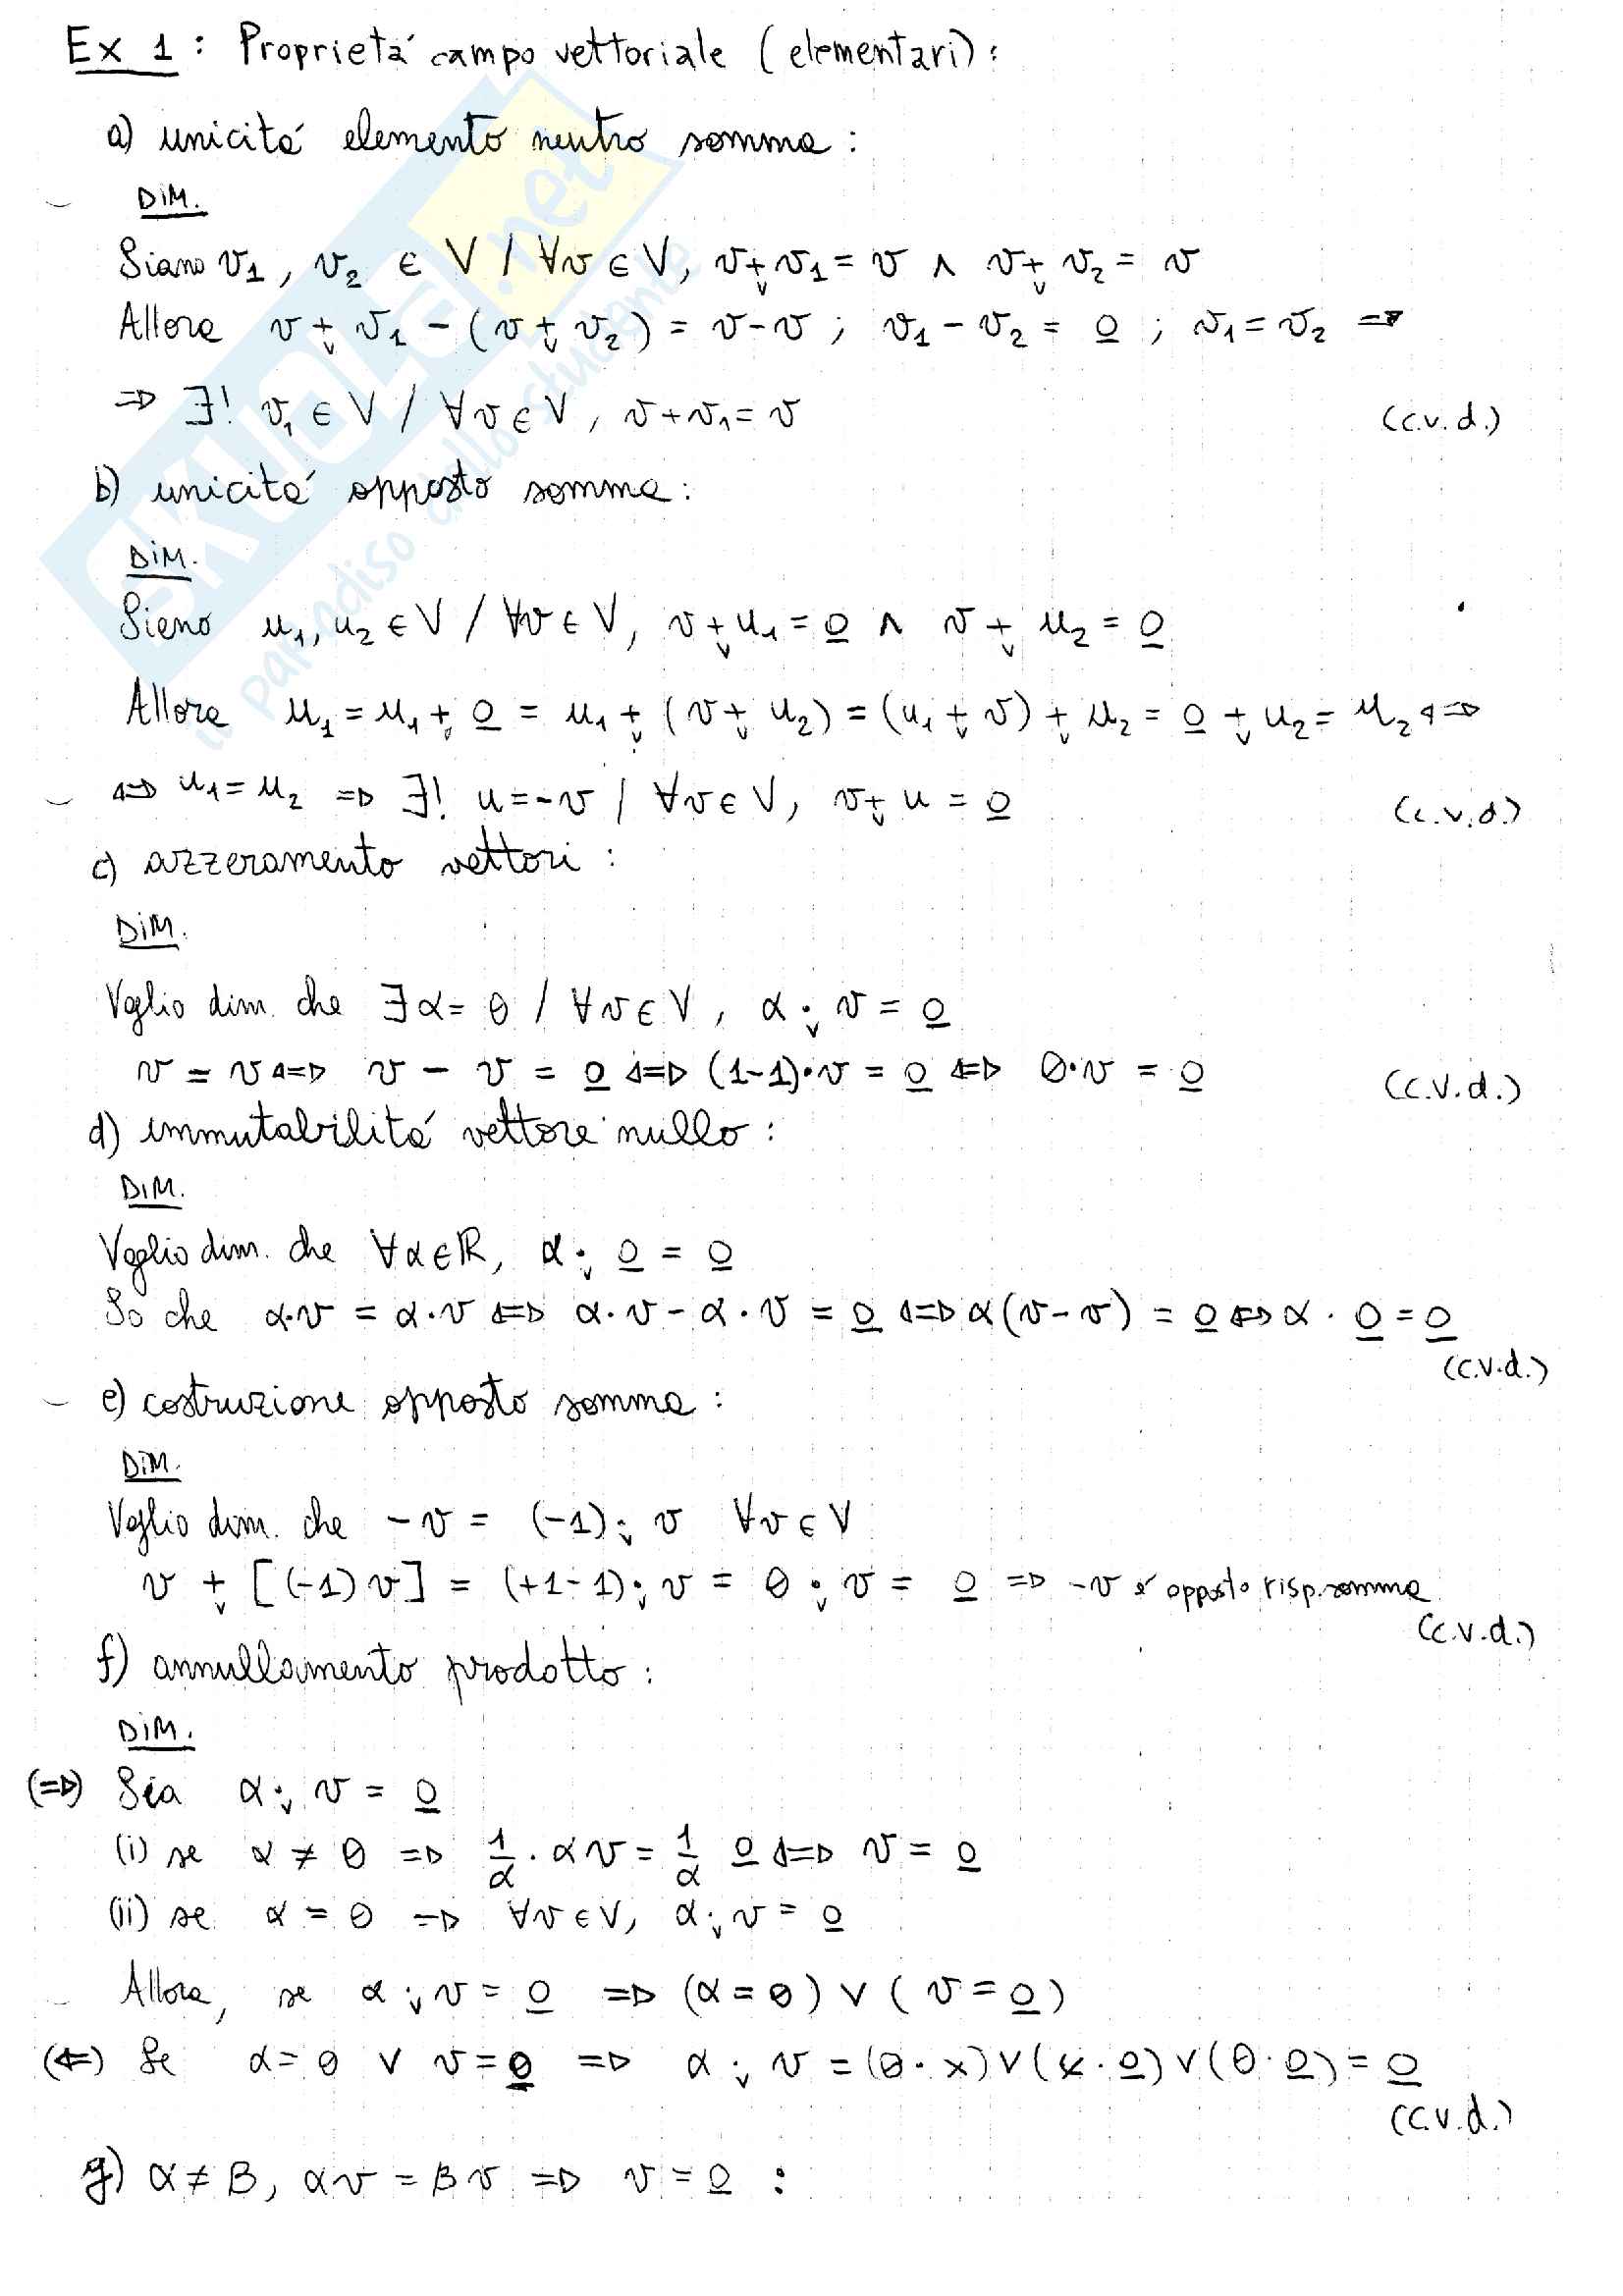 Ex 1: Proprietá campo vettoriale (elementari):
a) unicitá elemento neutro somma:
DIM.
Siano v₁, v₂ ∈ V / ∀v ∈ V, v +ᵥ v₁ = v ∧ v +ᵥ v₂ = v
Allora v +ᵥ v₁ - (v +ᵥ v₂) = v - v ; v₁ - v₂ = 0̲ ; v₁ = v₂ ⇒
⇒ ∃! v₁ ∈ V / ∀v ∈ V, v + v₁ = v (c.v.d.)
b) unicitá opposto somma:
DIM.
Siano u₁, u₂ ∈ V / ∀v ∈ V, v +ᵥ u₁ = 0̲ ∧ v +ᵥ u₂ = 0̲
Allora u₁ = u₁ +ᵥ 0̲ = u₁ +ᵥ (v +ᵥ u₂) = (u₁ +ᵥ v) +ᵥ u₂ = 0̲ +ᵥ u₂ = u₂ ⇔
⇔ u₁ = u₂ ⇒ ∃! u = -v / ∀v ∈ V, v +ᵥ u = 0̲ (c.v.d.)
c) azzeramento vettori:
DIM.
Voglio dim. che ∃ α = 0 / ∀v ∈ V, α ·ᵥ v = 0̲
v = v ⇔ v - v = 0̲ ⇔ (1-1)·v = 0̲ ⇔ 0·v = 0̲ (c.v.d.)
d) immutabilitá vettore nullo:
DIM.
Voglio dim. che ∀α ∈ ℝ, α ·ᵥ 0̲ = 0̲
So che α·v = α·v ⇔ α·v - α·v = 0̲ ⇔ α(v-v) = 0̲ ⇔ α · 0̲ = 0̲
(c.v.d.)
e) costruzione opposto somma:
DIM.
Voglio dim. che -v = (-1) ·ᵥ v ∀v ∈ V
v +ᵥ [(-1)v] = (+1-1) ·ᵥ v = 0 ·ᵥ v = 0̲ ⇒ -v é opposto risp. somma
(c.v.d.)
f) annullamento prodotto:
DIM.
(⇒) Sia α ·ᵥ v = 0̲
(i) se α ≠ 0 ⇒ 1/α · αv = 1/α 0̲ ⇔ v = 0̲
(ii) se α = 0 ⇒ ∀v ∈ V, α ·ᵥ v = 0̲
Allora, se α ·ᵥ v = 0̲ ⇒ (α = 0) ∨ (v = 0̲)
(⇐) Se α = 0 ∨ v = 0̲ ⇒ α ·ᵥ v = (0 · x) ∨ (α · 0̲) ∨ (0 · 0̲) = 0̲
(c.v.d.)
g) α ≠ β, αv = βv ⇒ v = 0̲ :
SKUOLA.net
il paradiso dello studente